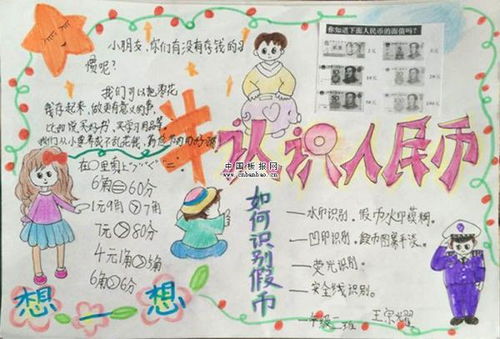 小朋友,你们有没有存钱的习
惯呢?
我们可以把零花
钱存起来,做更有意义的事,
比如说买好书,买学习用品等。
我们从小要养成不乱花钱、
你知道下面人民币的面值吗?
认识人民币
中国板报网
www.cnbanbao.cn
在○里
6角=60分
1元9角>7角
1元>80分
4元1角
6角>6分
想一想
如何识别假币
一水印识别。假币水印模糊。
一凹印识别。假币图案平淡。
一荧光识别。
一安全线识别。
一年级二班